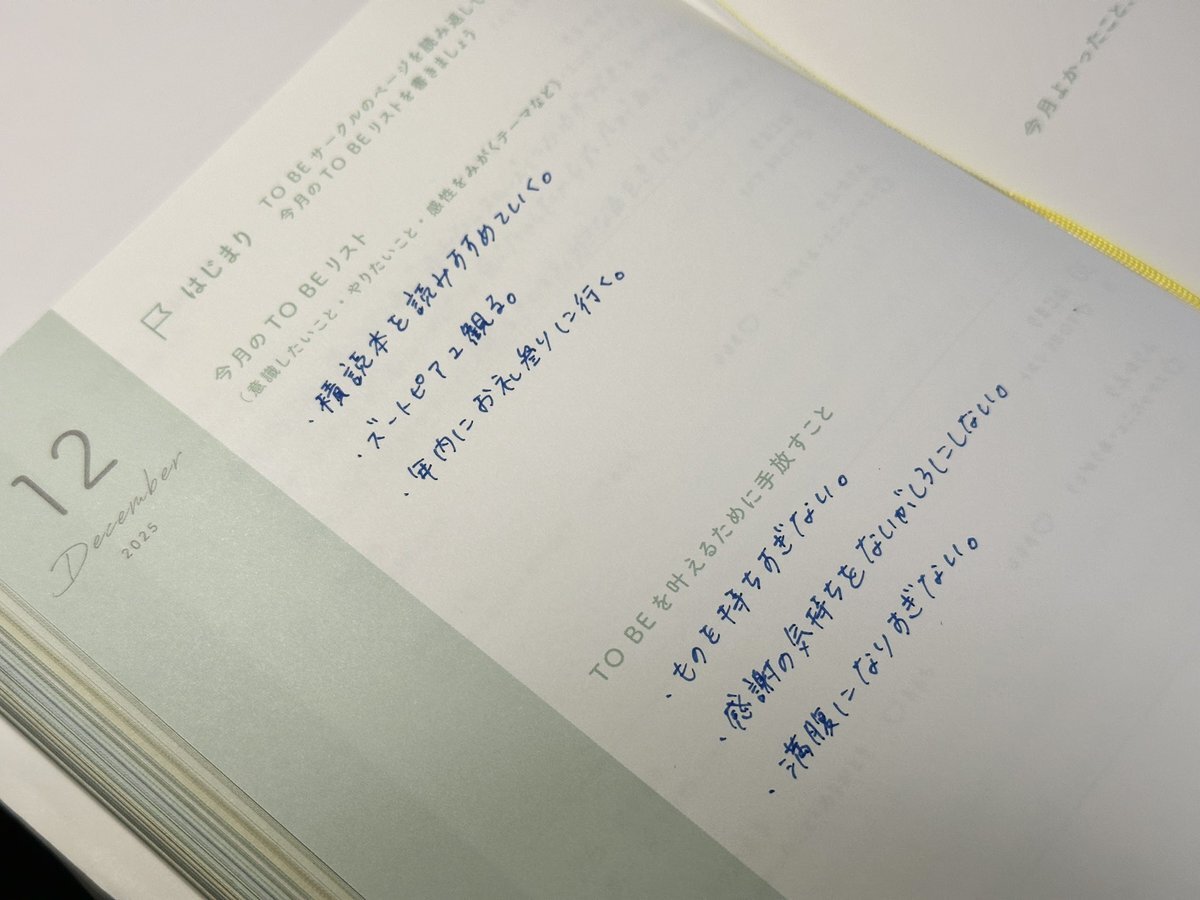 12
December
2025
はじまり
TO BE サークルのページを読み返し
今月の TO BE リストを書きましょう
今月の TO BE リスト
(意識したいこと・やりたいこと・感性をみがくテーマなど)
・積読本を読みすすめていく。
・ズートピア2観る。
・年内にお礼参りに行く。
TO BE を叶えるために手放すこと
・ものを持ちすぎない。
・感謝の気持ちをないがしろにしない。
・満腹になりすぎない。
今月よかったこと、